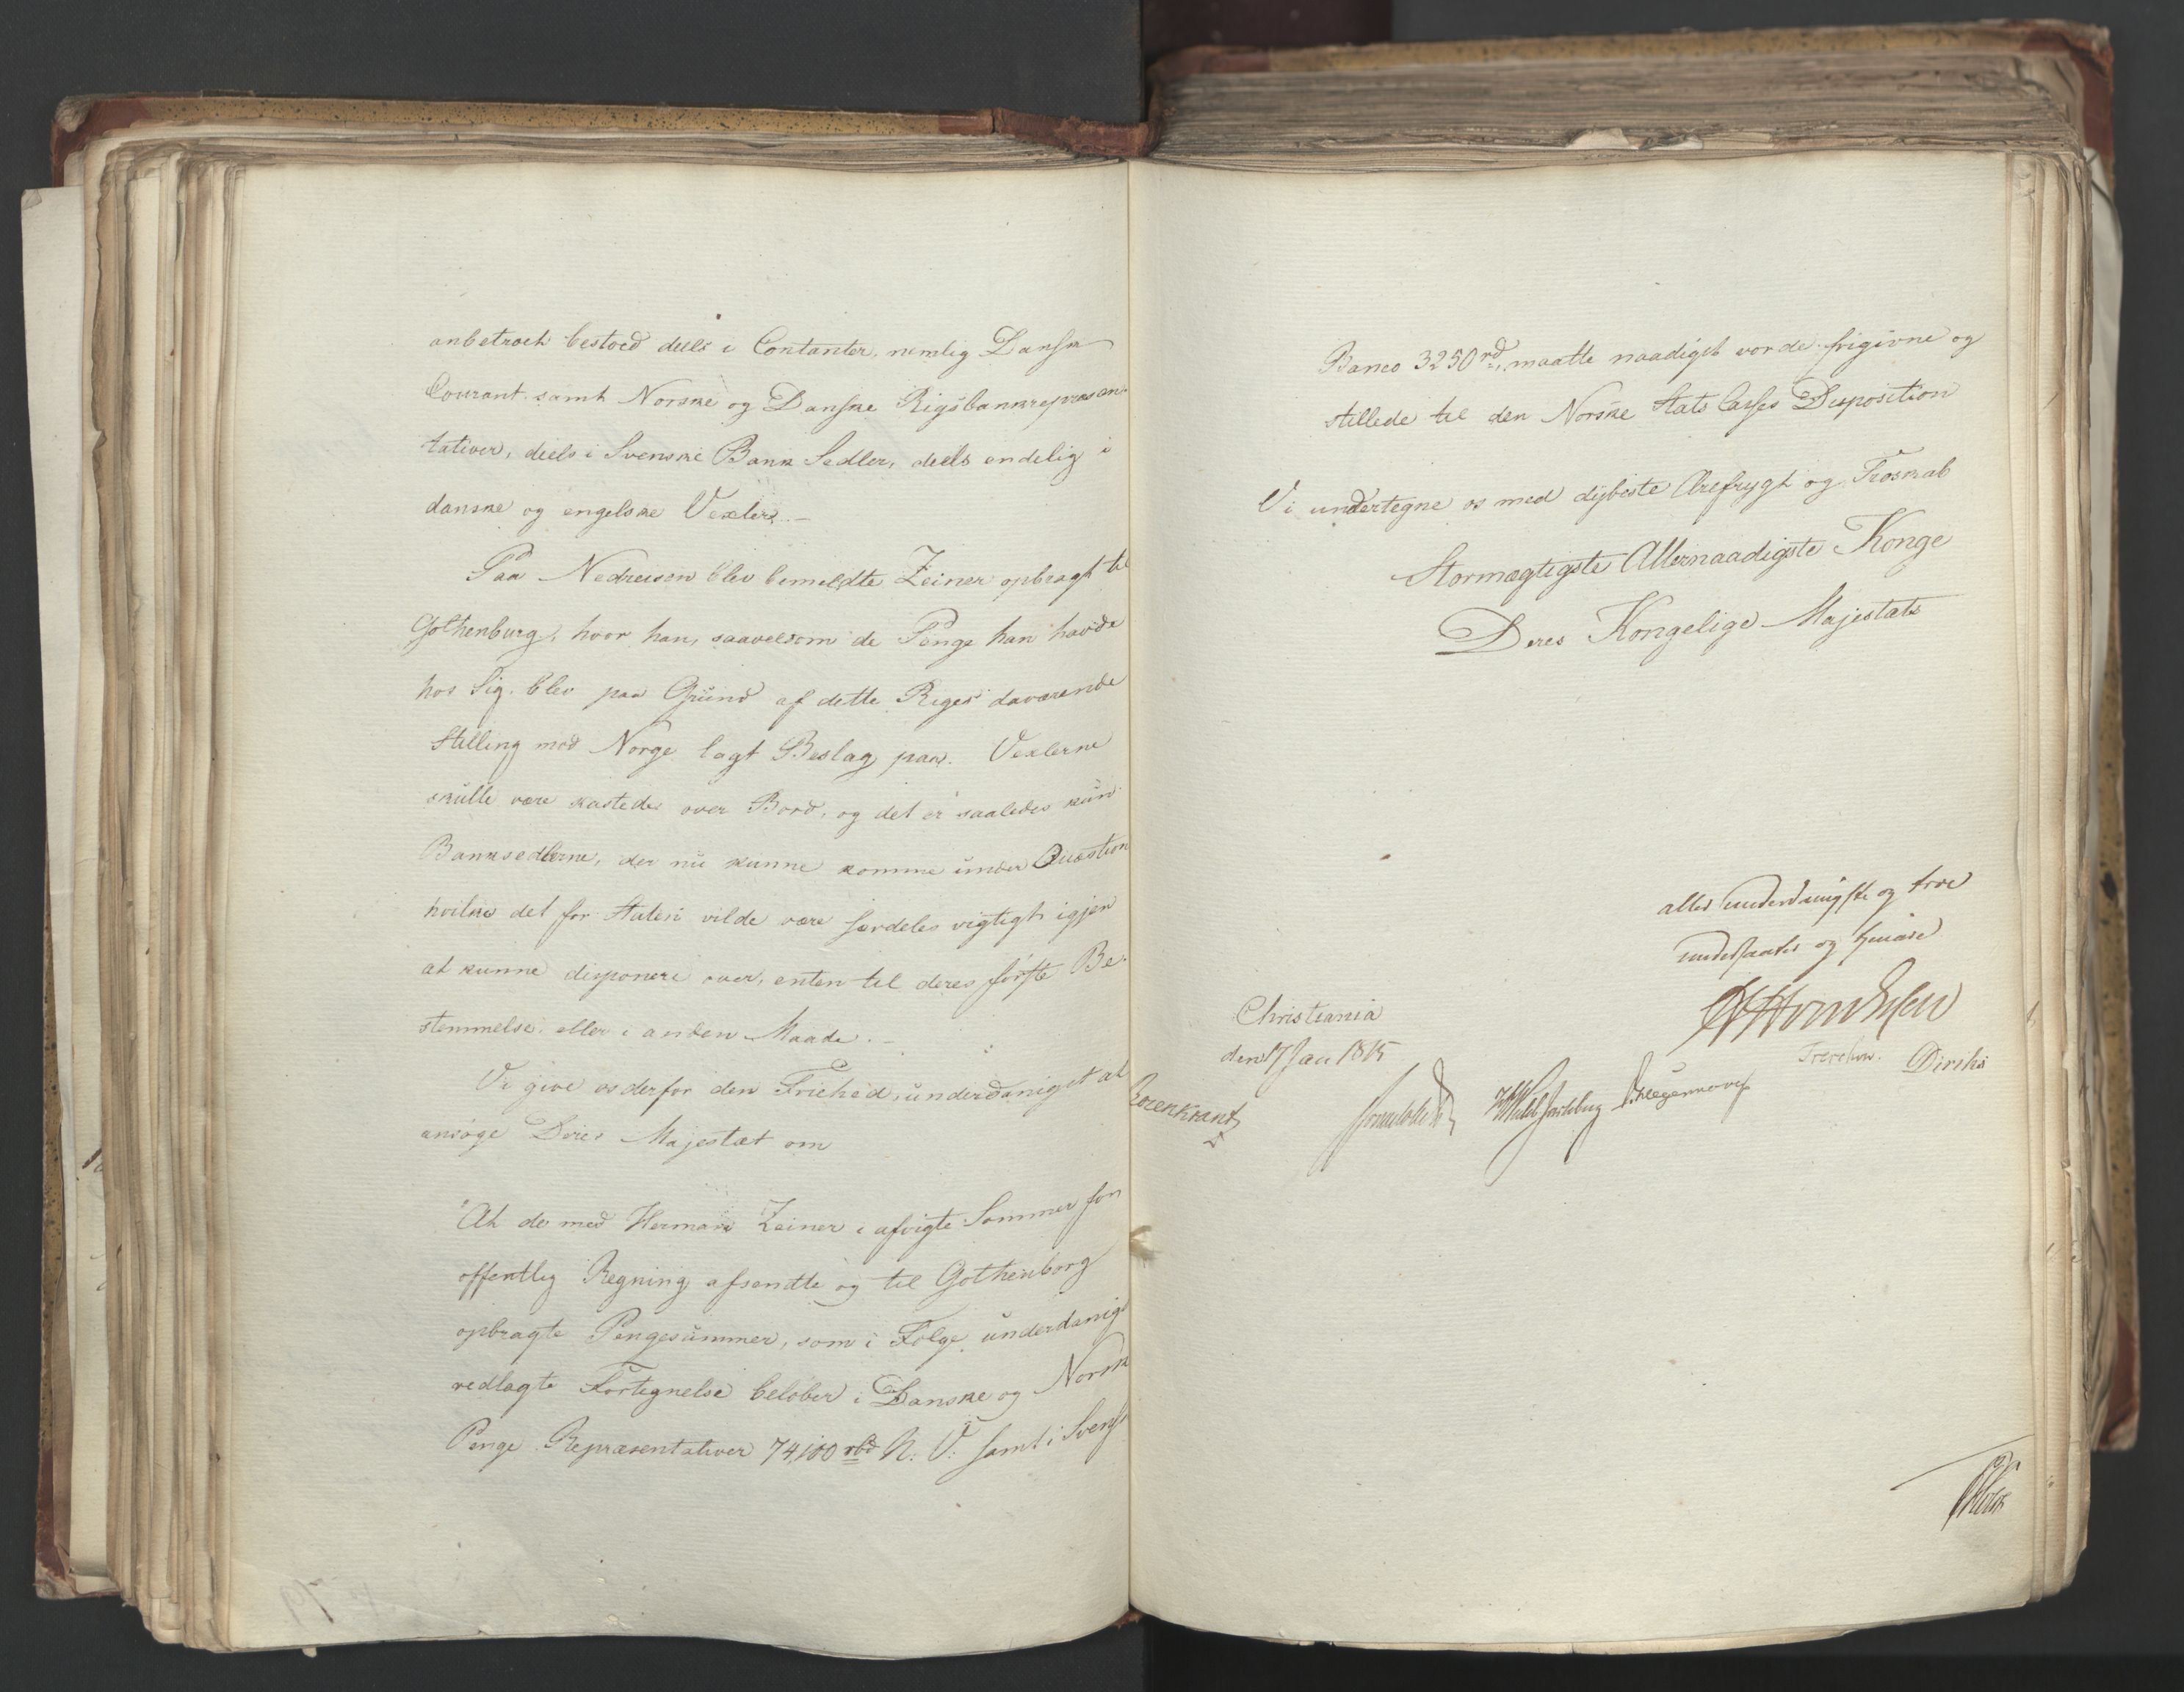 anbetroet bestoed deels i Contanter, nemlig Dansk
Courant samt Norske og Danske Rigsbankrepræsen-
tativer, deels i Svenske Bank Sedler, deels endelig i
danske og engelske Vexler. –
Paa Nedreisen blev bemeldte Zeiner opbragt til
Gothenburg, hvor han, saavelsom de Penge han havde
hos sig blev paa Grund af dette Riges daværende
Stilling mod Norge lagt Beslag paa. Vexlerne
skulle være kastede over Bord, og det er saaledes kun
Banksedlerne, der nu kunne komme under Quæstion
hvilke det for Staten vilde være særdeles vigtigt igjen
at kunne disponere over, enten til deres første Be-
stemmelse eller i anden Maade. –
Vi give os derfor den Friehed, underdanigst at
ansøge Deres Majestæt om
"At de med Herman Zeiner i afvigte Sommer for
offentlig Regning afsendte og til Gothenborg
opbragte Pengesummer, som i Følge underdanigst
vedlagte Fortegnelse beløber i Danske og Norske
Penge Repræsentativer 74,100 rbd N. V. samt i Svensk
Banco 3250 rd, maatte naadigst vorde frigivne og
stillede til den Norske Stats Casses Disposition
Vi undertegne os med dybeste Ærefrygt og Troskab
Stormægtigste Allernaadigste Konge
Deres Kongelige Majestæts
allerunderdanigste og troe
undersaatter og tienere
Christiania
den 17 Jan 1815
Treschow. Diriks
Rosenkrantz Sommerhielm Hegermann